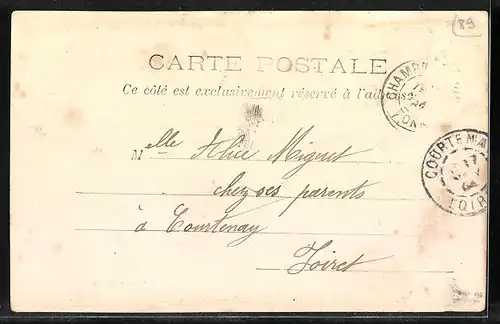 89
CARTE POSTALE
Ce côté est exclusivement réservé à l'adresse
Melle Alice Mignet
chez ses parents
à Courtenay
Loiret